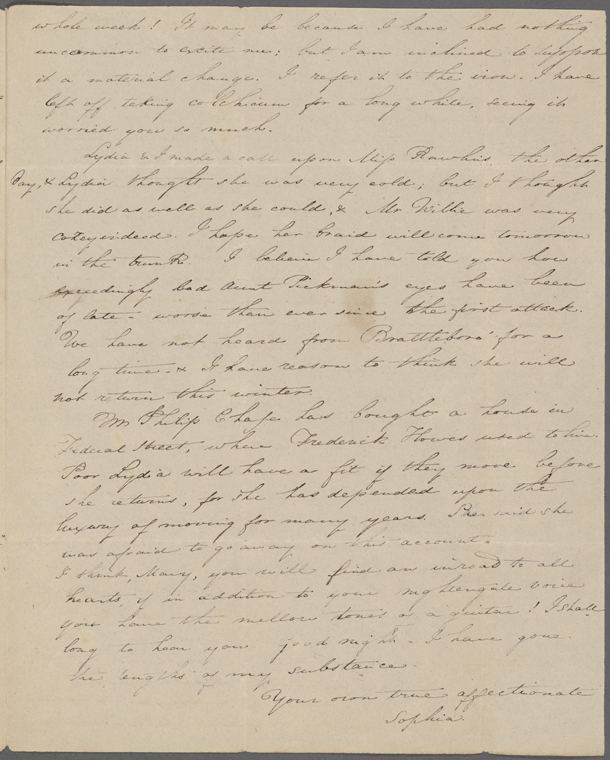 whole week! It may be because I have had nothing
uncommon to excite me; but I am inclined to suppose
it a material change. I refer it to the iron. I have
left off taking colchicum for a long while, seeing it
worried you so much.
Lydia & I made a call upon Miss Hawkins the other
day, & Lydia thought she was very cold; but I thought
she did as well as she could, & Mr Willie was very
indeed. I hope her braid will come tomorrow
in the trunk. I believe I have told you how
exceedingly bad Aunt Pickman's eyes have been
of late - worse than ever since the first attack.
We have not heard from Brattleboro' for a
long time - & I have reason to think she will
not return this winter.
Mr Philip Chase has bought a house in
Federal Street, where Frederick Howes used to live.
Poor Lydia will have a fit if they move before
she returns, for she has depended upon the
luxury of moving for many years. She said she
was afraid to go away on this account.
I think Mary, you will find an inroad to all
hearts, if in addition to your nightengale voice
you have the mellow tones of a guitar! I shall
long to hear you good night - I have gone
the lengths of my substance.
Your own true affectionate
Sophia.